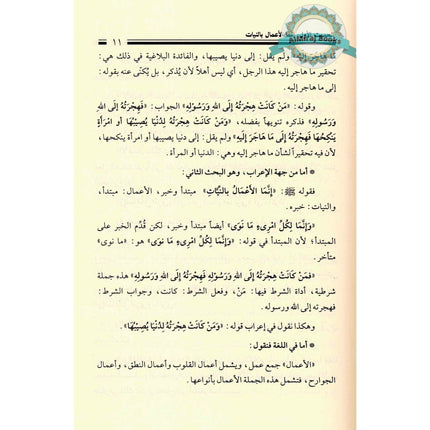 لأعمال بالنيات
١١
AlMiraj Books
مَا هَاجَرَ إليه» ولم يقل: إلى دنيا يصيبها، والفائدة البلاغية في ذلك هي:
تحقير ما هاجر إليه هذا الرجل، أي ليس أهلاً لأن يُذكر، بل يُكنّى عنه بقوله:
إلى ما هاجر إليه.
وقوله: «مَنْ كَانَتْ هِجْرَتُهُ إِلَى اللهِ وَرَسُولِهِ» الجواب: «فَهِجْرَتُهُ إِلَى اللهِ
وَرَسُولِهِ» فذكره تنويهاً بفضله، «وَمَنْ كَانَتْ هِجْرَتُهُ لِدُنْيَا يُصِيبُهَا أو امْرَأَةٍ
يَنْكِحُهَا فَهِجْرَتُهُ إِلَى مَا هَاجَرَ إِلَيهِ» ولم يقل: إلى دنيا يصيبها أو امرأة ينكحها،
لأن فيه تحقيراً لشأن ما هاجر إليه وهي: الدنيا أو المرأة.
* أما من جهة الإعراب، وهو البحث الثاني:
فقوله ﷺ: «إِنَّمَا الأَعْمَالُ بِالنِّيَّاتِ» مبتدأ وخبر، الأعمال: مبتدأ،
والنيات: خبره.
«وَإِنَّمَا لِكُلِّ امْرِىءٍ مَا نَوَى» أيضاً مبتدأ وخبر، لكن قُدِّم الخبر على
المبتدأ؛ لأن المبتدأ في قوله: «وَإِنَّمَا لِكُلِّ امْرِىءٍ مَا نَوَى» هو: «ما نوى»
متأخر.
«فمَنْ كَانَتْ هِجْرَتُهُ إِلَى اللهِ وَرَسُولِهِ فَهِجْرَتُهُ إِلَى اللهِ وَرَسُولِهِ» هذه جملة
شرطية، أداة الشرط فيها: مَنْ، وفعل الشرط: كانت، وجواب الشرط:
فهجرته إلى الله ورسوله.
وهكذا نقول في إعراب قوله: «وَمَنْ كَانَتْ هِجْرَتُهُ لِدُنْيَا يُصِيبُهَا».
* أما في اللغة فنقول:
«الأعمال» جمع عمل، ويشمل أعمال القلوب وأعمال النطق، وأعمال
الجوارح، فتشمل هذه الجملة الأعمال بأنواعها.